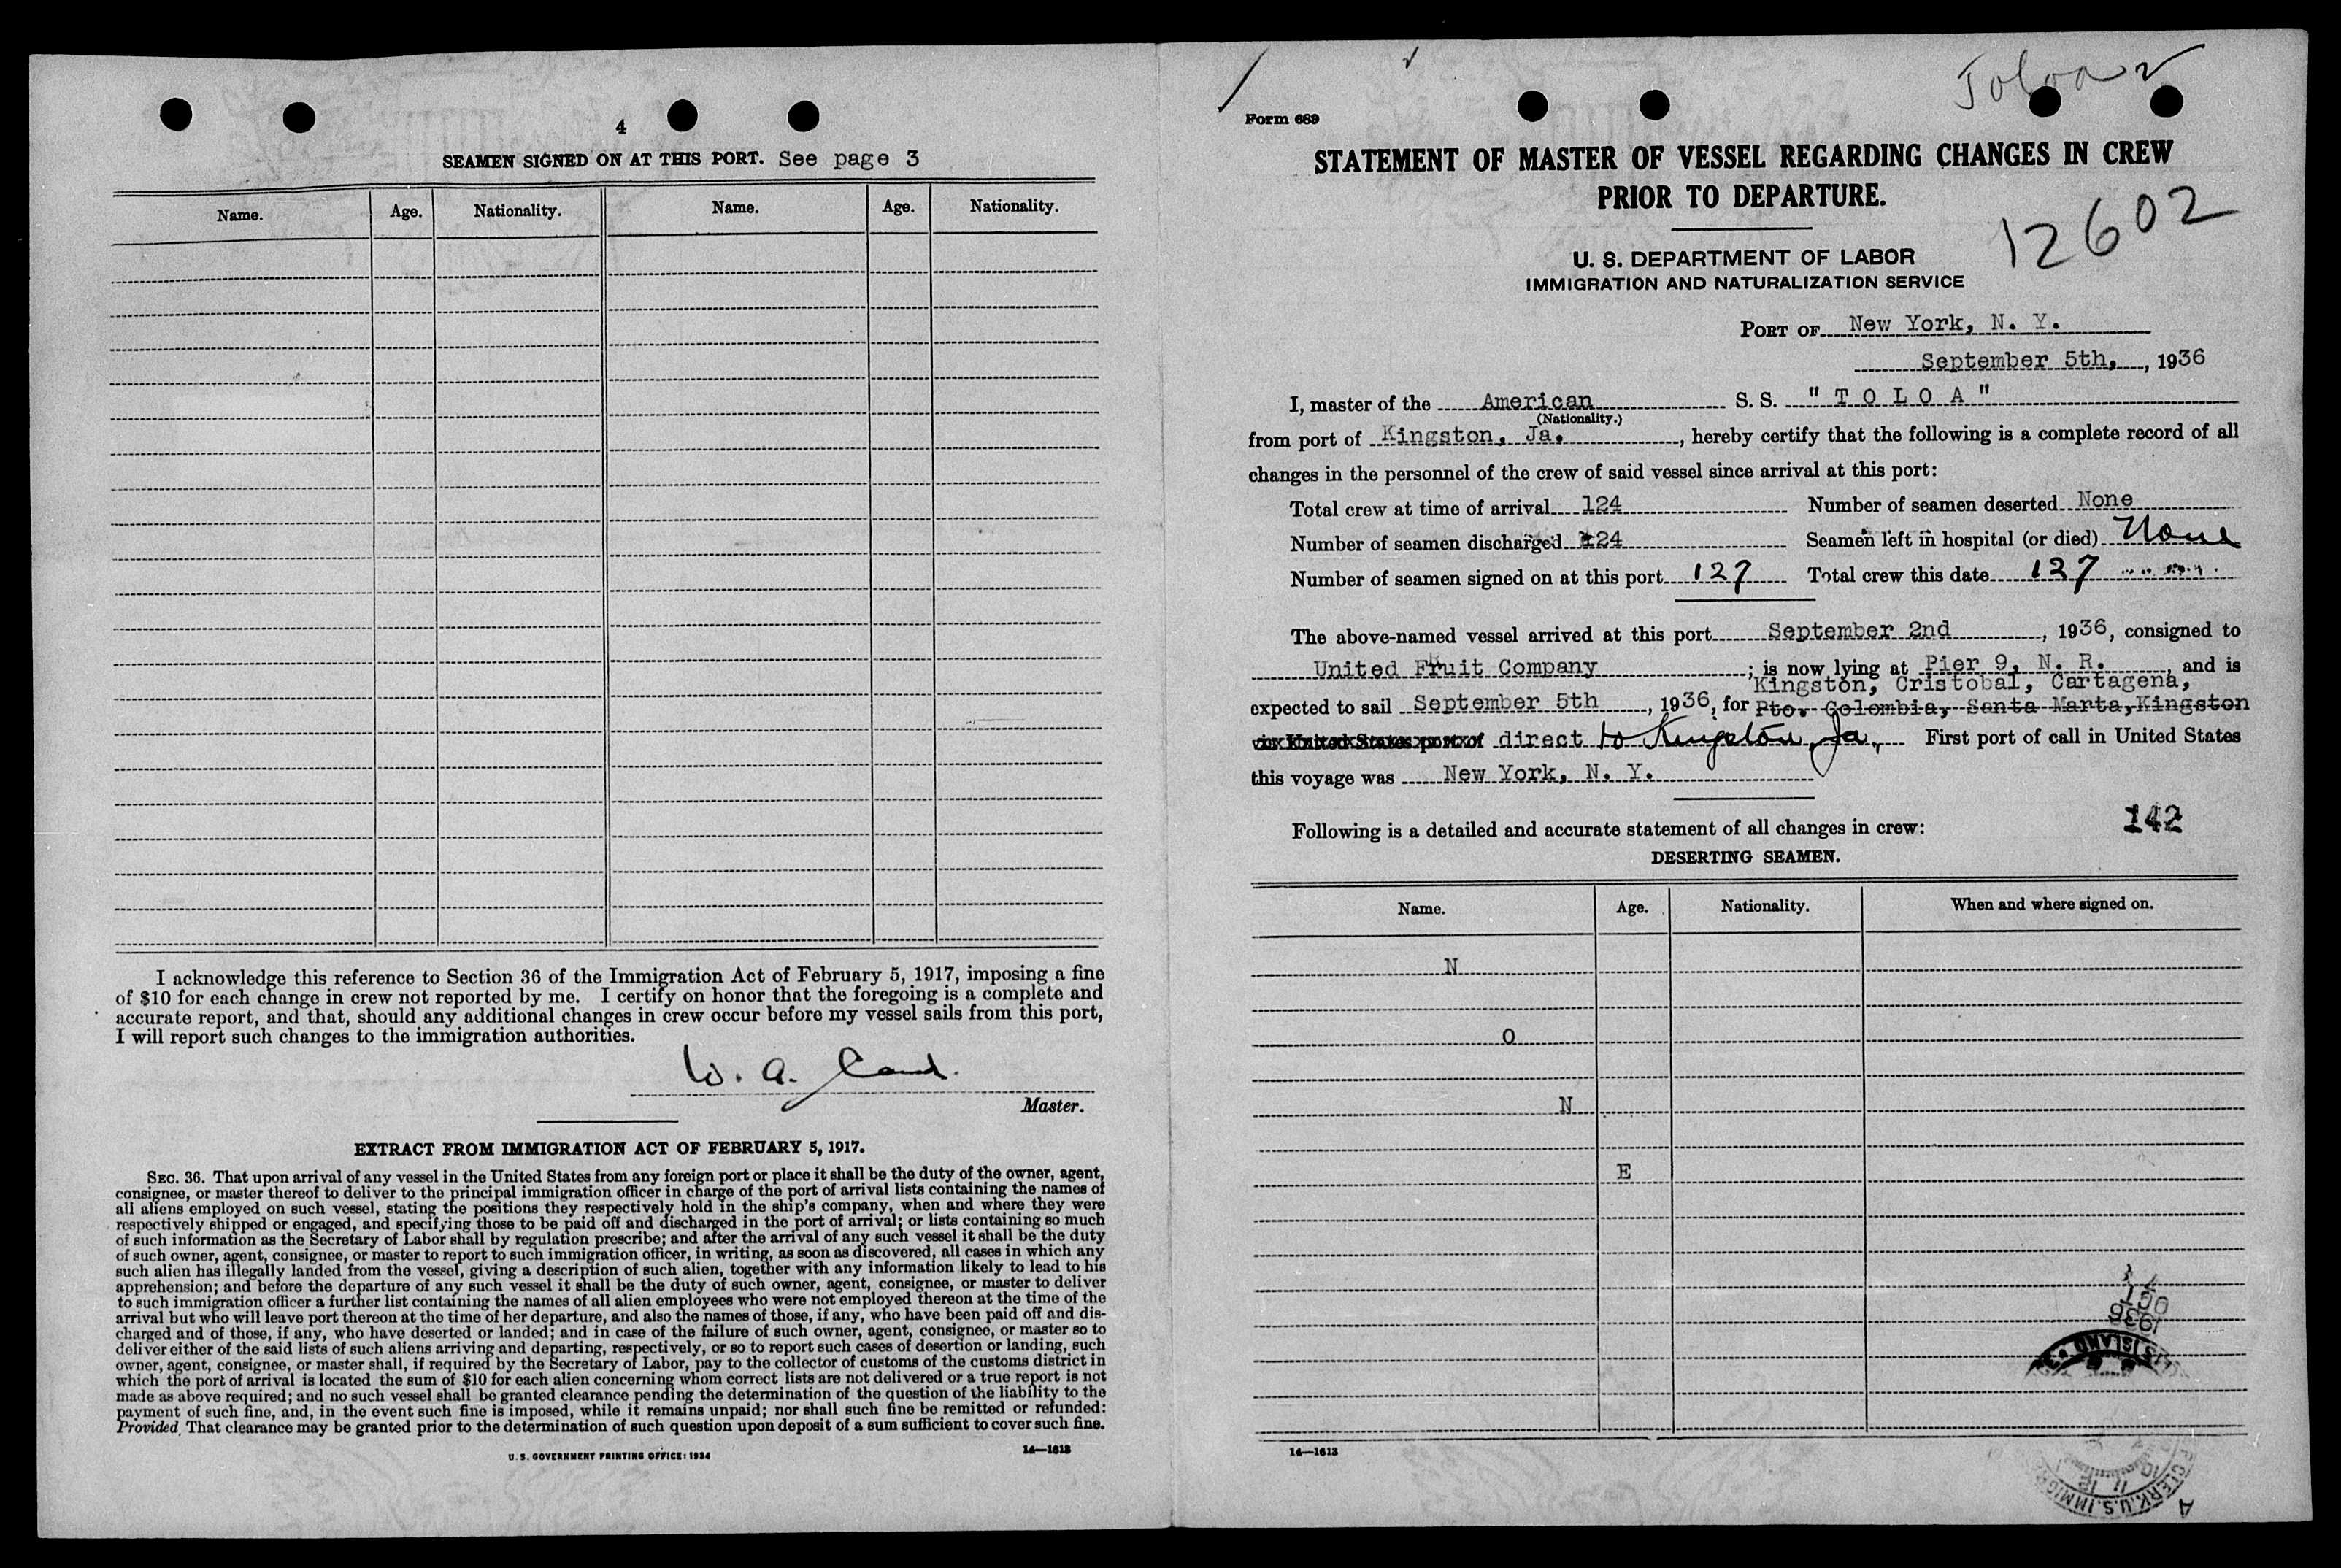 4
SEAMEN SIGNED ON AT THIS PORT. See page 3
Name. Age. Nationality. Name. Age. Nationality.
I acknowledge this reference to Section 36 of the Immigration Act of February 5, 1917, imposing a fine
of $10 for each change in crew not reported by me. I certify on honor that the foregoing is a complete and
accurate report, and that, should any additional changes in crew occur before my vessel sails from this port,
I will report such changes to the immigration authorities.
W. A.
Master.
EXTRACT FROM IMMIGRATION ACT OF FEBRUARY 5, 1917.
SEC. 36. That upon arrival of any vessel in the United States from any foreign port or place it shall be the duty of the owner, agent,
consignee, or master thereof to deliver to the principal immigration officer in charge of the port of arrival lists containing the names of
all aliens employed on such vessel, stating the positions they respectively hold in the ship's company, when and where they were
respectively shipped or engaged, and specifying those to be paid off and discharged in the port of arrival; or lists containing so much
of such information as the Secretary of Labor shall by regulation prescribe; and after the arrival of any such vessel it shall be the duty
of such owner, agent, consignee, or master to report to such immigration officer, in writing, as soon as discovered, all cases in which any
such alien has illegally landed from the vessel, giving a description of such alien, together with any information likely to lead to his
apprehension; and before the departure of any such vessel it shall be the duty of such owner, agent, consignee, or master to deliver
to such immigration officer a further list containing the names of all alien employees who were not employed thereon at the time of the
arrival but who will leave port thereon at the time of her departure, and also the names of those, if any, who have been paid off and dis-
charged and of those, if any, who have deserted or landed; and in case of the failure of such owner, agent, consignee, or master so to
deliver either of the said lists of such aliens arriving and departing, respectively, or so to report such cases of desertion or landing, such
owner, agent, consignee, or master shall, if required by the Secretary of Labor, pay to the collector of customs of the customs district in
which the port of arrival is located the sum of $10 for each alien concerning whom correct lists are not delivered or a true report is not
made as above required; and no such vessel shall be granted clearance pending the determination of the question of the liability to the
payment of such fine, and, in the event such fine is imposed, while it remains unpaid; nor shall such fine be remitted or refunded:
Provided, That clearance may be granted prior to the determination of such question upon deposit of a sum sufficient to cover such fine.
U. S. GOVERNMENT PRINTING OFFICE: 1934
14—1613
Toloa
Form 689
STATEMENT OF MASTER OF VESSEL REGARDING CHANGES IN CREW
PRIOR TO DEPARTURE.
12602
U. S. DEPARTMENT OF LABOR
IMMIGRATION AND NATURALIZATION SERVICE
PORT OF New York, N. Y.
September 5th, , 1936
I, master of the American S. S. "T O L O A"
(Nationality.)
from port of Kingston, Ja. , hereby certify that the following is a complete record of all
changes in the personnel of the crew of said vessel since arrival at this port:
Total crew at time of arrival 124 Number of seamen deserted None
Number of seamen discharged 124 Seamen left in hospital (or died) None
Number of seamen signed on at this port 127 Total crew this date 127
The above-named vessel arrived at this port September 2nd , 1936, consigned to
United Fruit Company ; is now lying at Pier 9, N. R. , and is
Kingston, Cristobal, Cartagena,
expected to sail September 5th , 1936, for Pto. Colombia, Santa Marta, Kingston
via United States port of direct to Kingston, Ja. First port of call in United States
this voyage was New York, N. Y.
142
Following is a detailed and accurate statement of all changes in crew:
DESERTING SEAMEN.
Name. Age. Nationality. When and where signed on.
N
O
N
E
OCT
1936
ISLAND
14—1613
CLERK, U.S. IMMIG
10 11 12